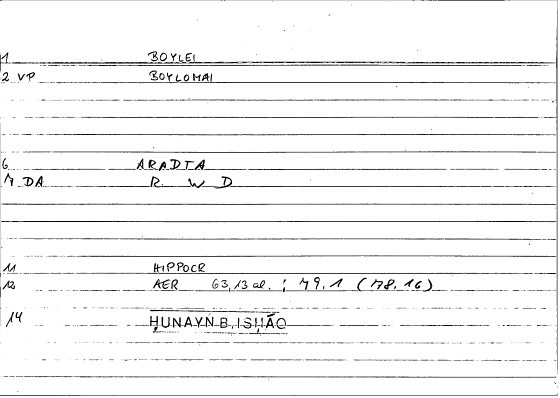 1 BOYLEI
2 VP BOYLOMAI
6 ARADTA
7 DA R W D
11 HIPPOCR
12 AER 63,13 al. ; 79.1 (78.16)
14 ḤUNAYN B. ISḤĀQ